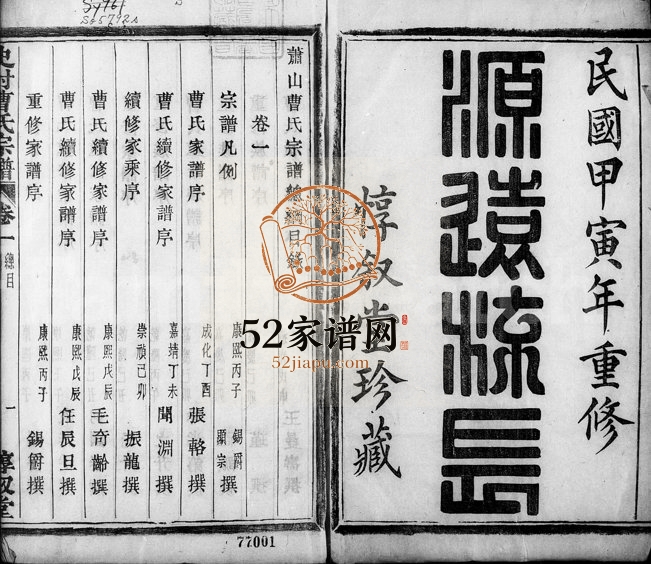 民國甲寅年重修
源遠流長
惇叙堂珍藏
蕭山曹氏宗譜總目錄
卷一
宗譜凡例 康熙丙子 錫爵 顯宗 撰
曹氏家譜序 成化丁酉 張輅撰
曹氏續修家譜序 嘉靖丁未 聞淵撰
續修家乘序 崇禎己卯 振龍撰
曹氏續修家譜序 康熙戊辰 毛奇齡撰
曹氏續修家譜序 康熙戊辰 任辰旦撰
重修家譜序 康熙丙子 錫爵撰
史村曹氏宗譜 卷一 總目 一 惇叙堂
52家谱网
52jiapu.com
77001